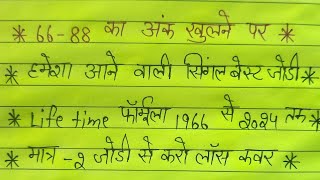 * 66-88 का अंक खुलने पर *
* हमेशा आने वाली सिंगल बेस्ट जोडी *
* Life time फॉर्मूला 1966 से २०२५ तक *
* मात्र -२ जोडी से करो लॉस कवर *